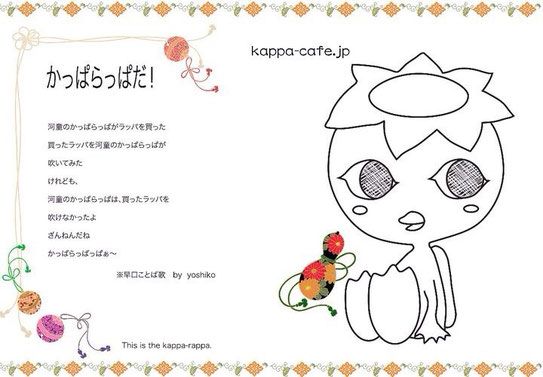 かっぱらっぱだ!
河童のかっぱらっぱがラッパを買った
買ったラッパを河童のかっぱらっぱが
吹いてみた
けれども、
河童のかっぱらっぱは、買ったラッパを
吹けなかったよ
ざんねんだね
かっぱらっぱっぱぁ〜
※早口ことば歌 by yoshiko
This is the kappa-rappa.
kappa-cafe.jp